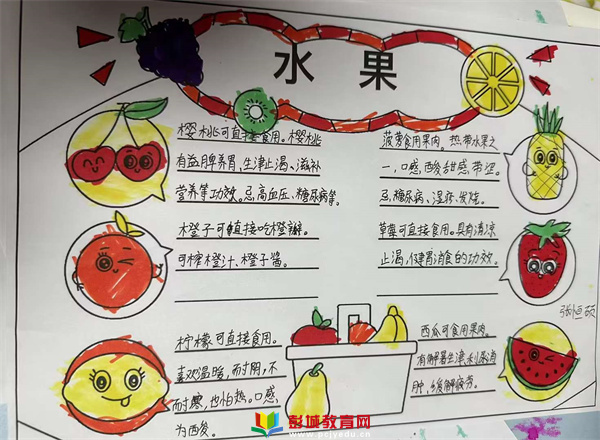 水果
樱桃可直接食用。樱桃
有益脾养胃、生津止渴、滋补
营养等功效。忌高血压、糖尿病等。
橙子可直接吃橙瓣。
可榨橙汁、橙子酱。
柠檬可直接食用。
喜欢温暖,而耐阴,不
耐寒,也怕热。口感
为西复。
菠萝食用果肉。热带水果之
一,口感,西复甜感,带涩。
忌,糖尿病、湿疹、发烧。
草莓可直接食用。具有清凉
止渴,健胃消食的功效。
张恒硕
西瓜可食用果肉。
有解暑生津,利尿消
肿,缓解疲劳。
彭城教育网
www.pcjyedu.cn